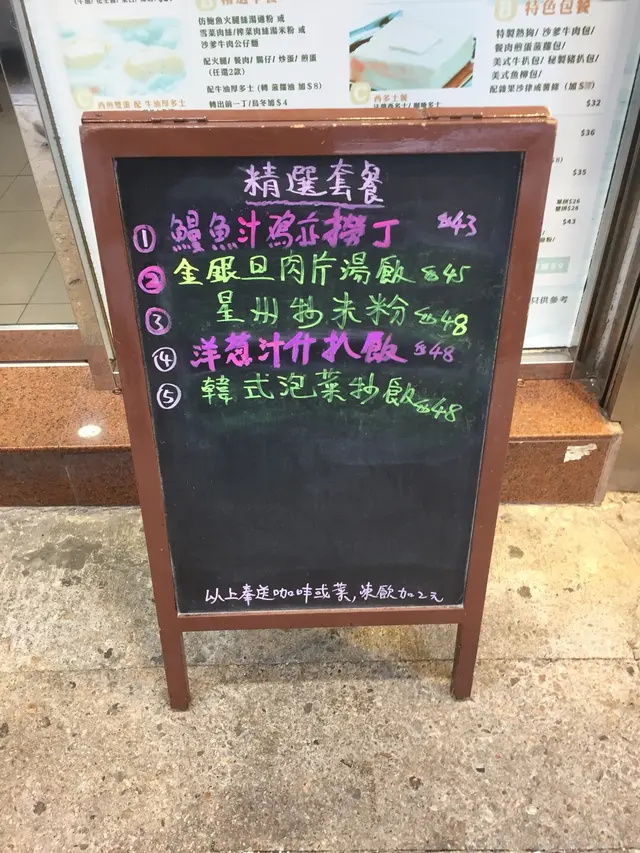 仿鮑魚火腿絲湯通粉 或
雪菜肉絲/榨菜肉絲湯米粉 或
沙爹牛肉公仔麵
配火腿/ 餐肉/ 腸仔/ 炒蛋/ 煎蛋
(任選2款)
配牛油厚多士 (轉 菠蘿油 加$8)
轉出前一丁/烏冬加$4
西煎雙蛋 配 牛油厚多士
B 特色包餐
特製熱狗/ 沙爹牛肉包/
餐肉煎蛋菠蘿包/
美式牛扒包/ 秘製豬扒包/
美式魚柳包/
C 西多士餐
$32
$36
$35
$43
只供參考
精選套餐
① 鰻魚汁鸡亦撈丁 $43
② 金銀旦肉片湯飯 $45
③ 星州抄米粉 $48
④ 洋葱汁什扒飯 $48
⑤ 韓式泡菜抄飯 $48
以上奉送咖啡或茶,凍飲加2元